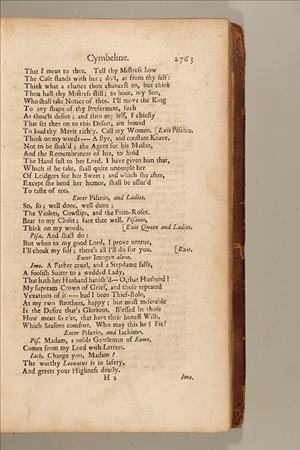 Cymbeline. 2763
That I mean to thee. Tell thy Mistress how
The Case stands with her; do't, as from thy self:
Think what a chance thou chancest on, but think
Thou hast thy Mistress still; to boot, my Son,
Who shall take Notice of thee. I'll move the King
To any shape of thy Preferment, such
As thou'lt desire; and then my self, I chiefly
That set thee on to this Desert, am bound
To load thy Merit richly. Call my Women. [Exit Pisanio.
Think on my words---- A slye, and constant Knave,
Not to be shak'd; the Agent for his Master,
And the Remembrancer of her, to hold
The Hand fast to her Lord. I have given him that,
Which if he take, shall quite unpeople her
Of Leidgers for her Sweet; and which she after,
Except she bend her humor, shall be assur'd
To taste of too.
Enter Pisanio, and Ladies.
So, so; well done, well done;
The Violets, Cowslips, and the Prim-Roses
Bear to my Closet; fare thee well, Pisanio,
Think on my words. [Exit Queen and Ladies.
Pisa. And shall do:
But when to my good Lord, I prove untrue,
I'll choak my self; there's all I'll do for you. [Exit.
Enter Imogen alone.
Imo. A Father cruel, and a Stepdame false,
A foolish Suitor to a wedded Lady,
That hath her Husband banish'd---O, that Husband!
My supream Crown of Grief, and those repeated
Vexations of it ---- had I been Thief-stoln,
As my two Brothers, happy; but most miserable
Is the Desire that's Glorious. Blessed be those
How mean so e'er, that have their honest Wills,
Which Seasons comfort. Who may this be? Fie!
Enter Pisanio, and Iachimo.
Pis. Madam, a noble Gentleman of Rome,
Comes from my Lord with Letters.
Iach. Change you, Madam?
The worthy Leonatus is in safety,
And greets your Highness dearly.
H 2 Imo.